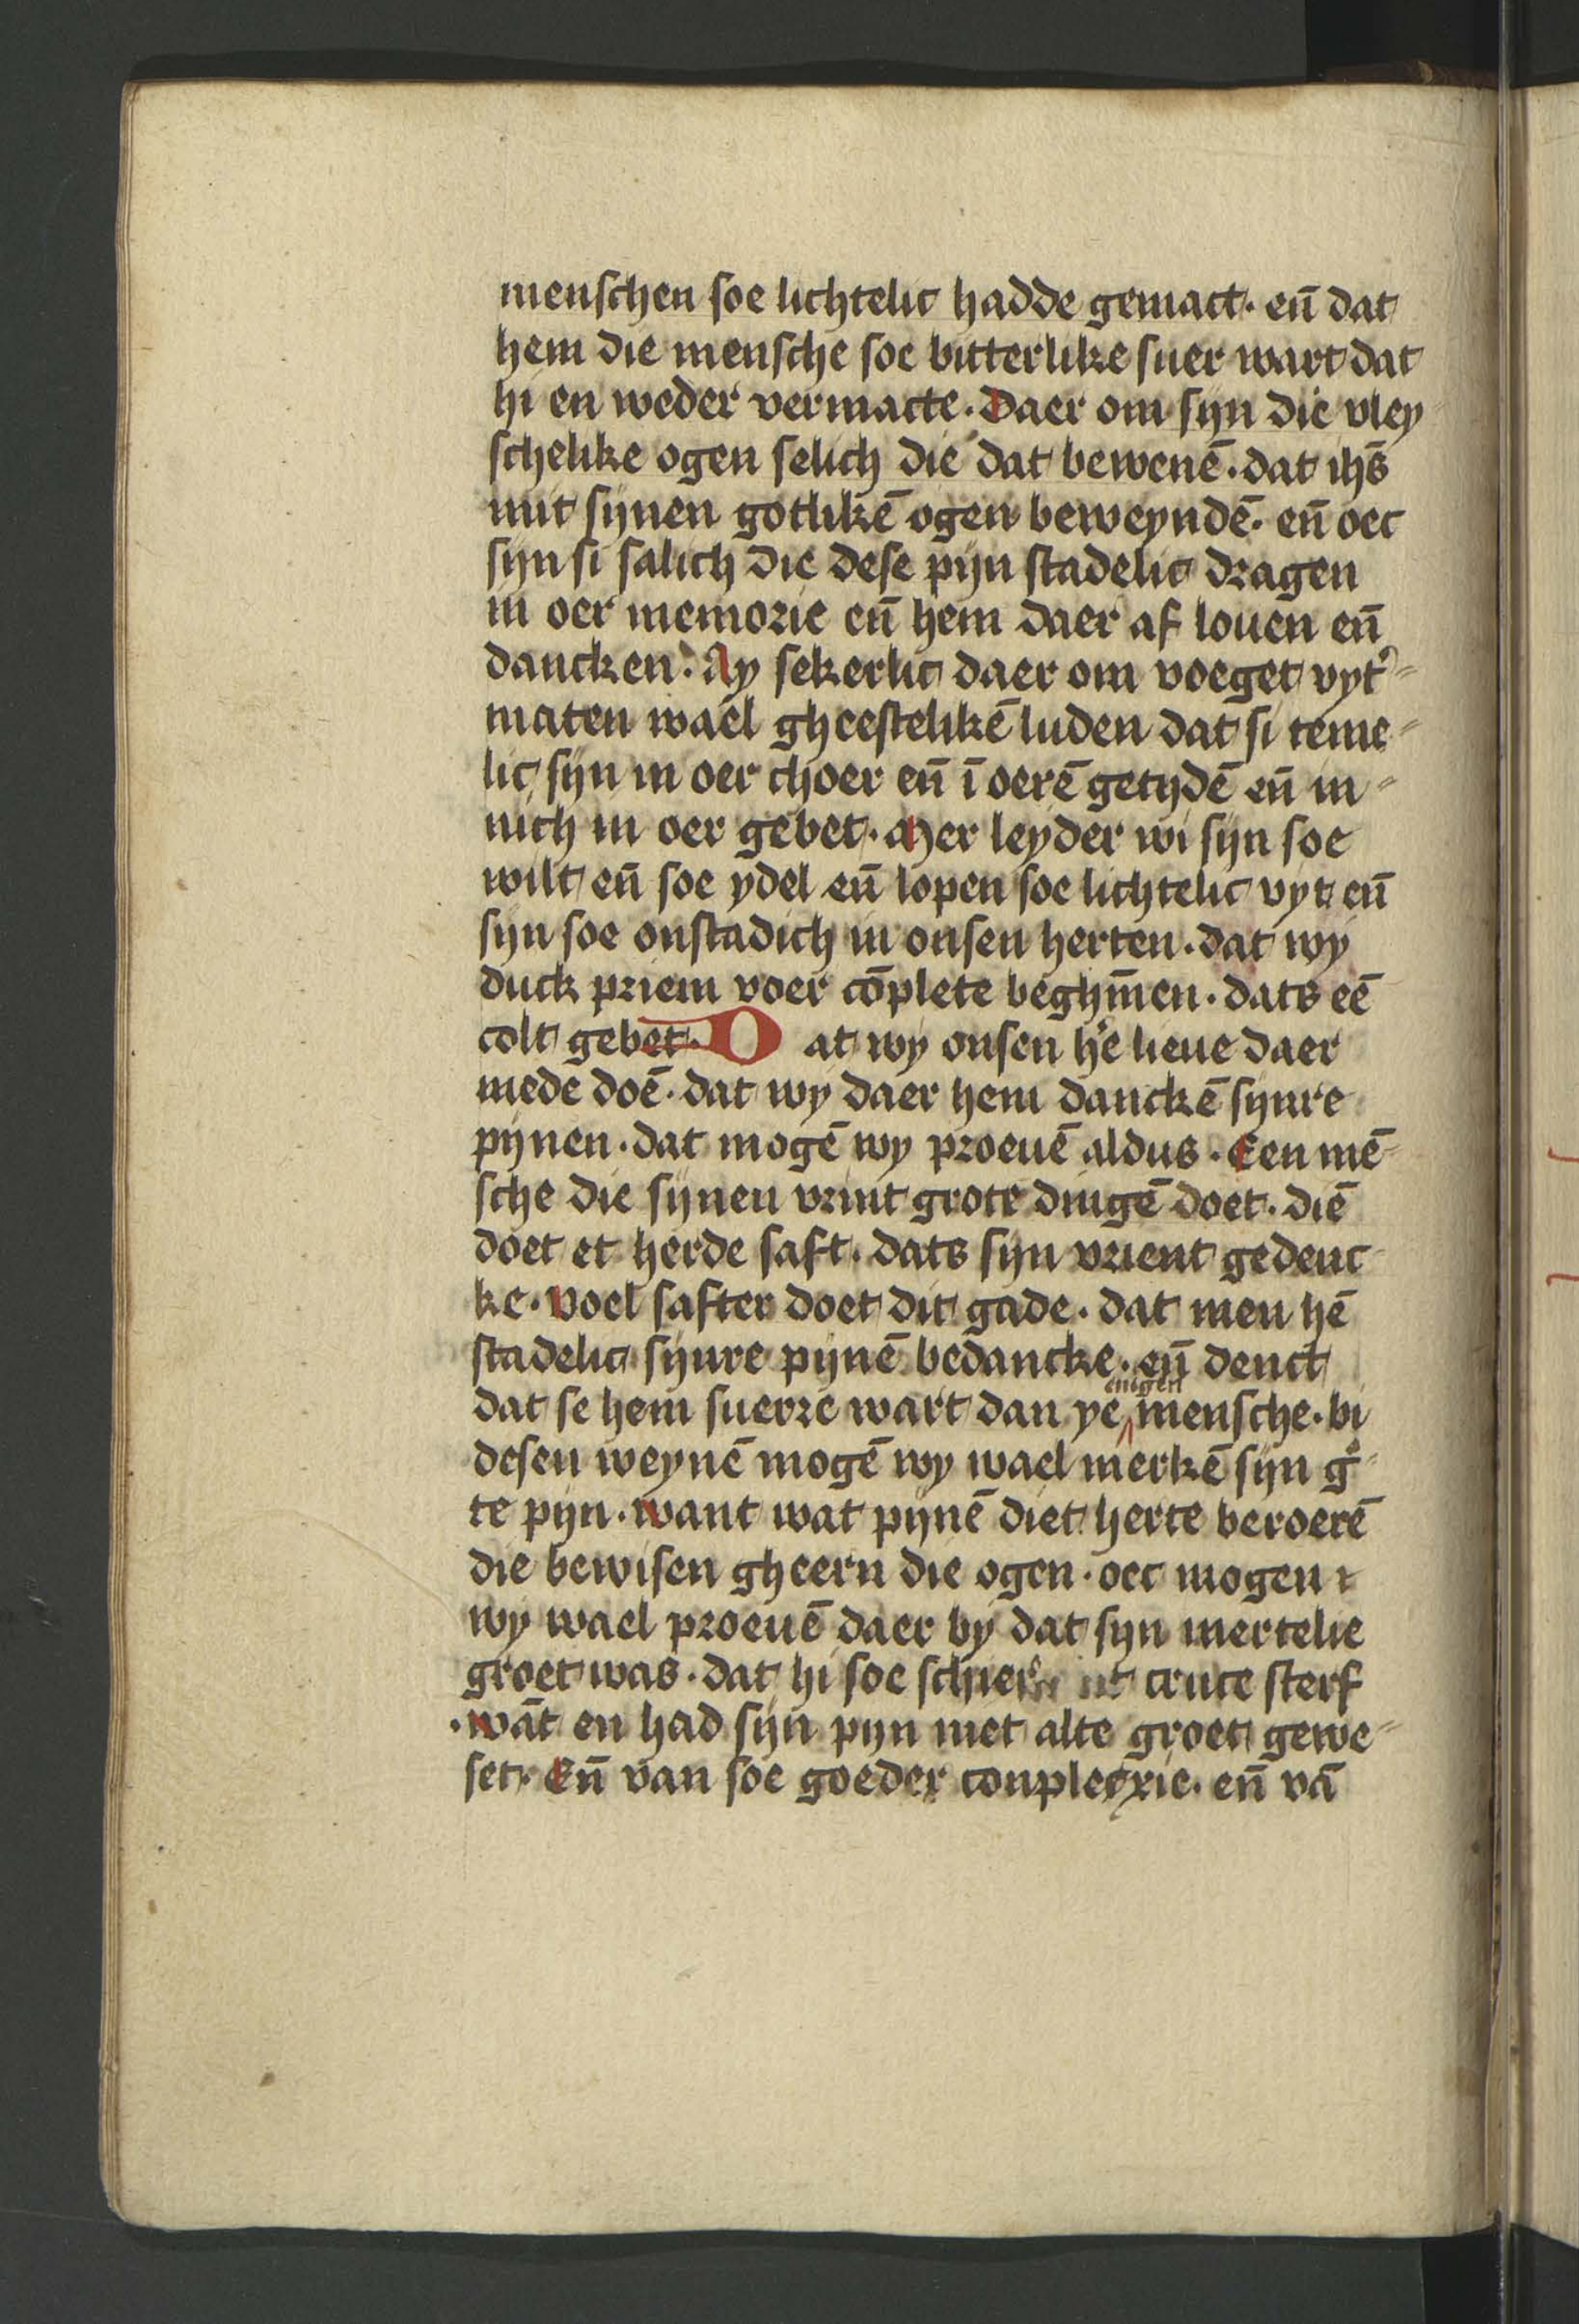 menschen soe lichtelic hadde gemact. en̄ dat
hem die mensche soe bitterlike suer wart dat
hi en weder vermacte. Daer om sijn die vley
schelike ogen selich die dat bewenē. dat ihs̄
mit sijnen gotlikē ogen beweyndē. en̄ oec
sijn si salich die dese pijn stadelic dragen
in oer memorie en̄ hem daer af louen en̄
dancken. Ay sekerlic daer om voeget vyt⸗
maten wael gheestelikē luden dat si teme⸗
lic sijn in oer choer en̄ ī oerē getijdē en̄ in⸗
nich in oer gebet. Mer leyder wi sijn soe
wilt en̄ soe ydel en̄ lopen soe lichtelic vyt en̄
sijn soe onstadich in onsen herten. dat wy
duck priem voer cōplete beghīnen. dats eē
colt gebet. Dat wy onsen h'e lieue daer
mede doē. dat wy daer hem danckē sijnre
pijnen. dat mogē wy proeuē aldus. Een mē⸗
sche die sijnen vrint grote dingē doet. diē
doet et herde saft. dats sijn vrient gedenc
ke. voel safter doet dit gade. dat men hē
stadelic sijnre pijnē bedancke. en̄ denct
enigen
dat se hem suerre wart dan ye mensche. bi
desen weynē mogē wy wael merkē sijn gͦ⸗
te pijn. want wat pijnē diet herte beroerē
die bewisen gheern die ogen. oec mogen
wy wael proeuē daer by dat sijn mertelie
groet was. dat hi soe schier cruce sterf
. wāt en had sijn pijn niet alte groet gewe⸗
set. En̄ van soe goeder conplecxie. en̄ vā